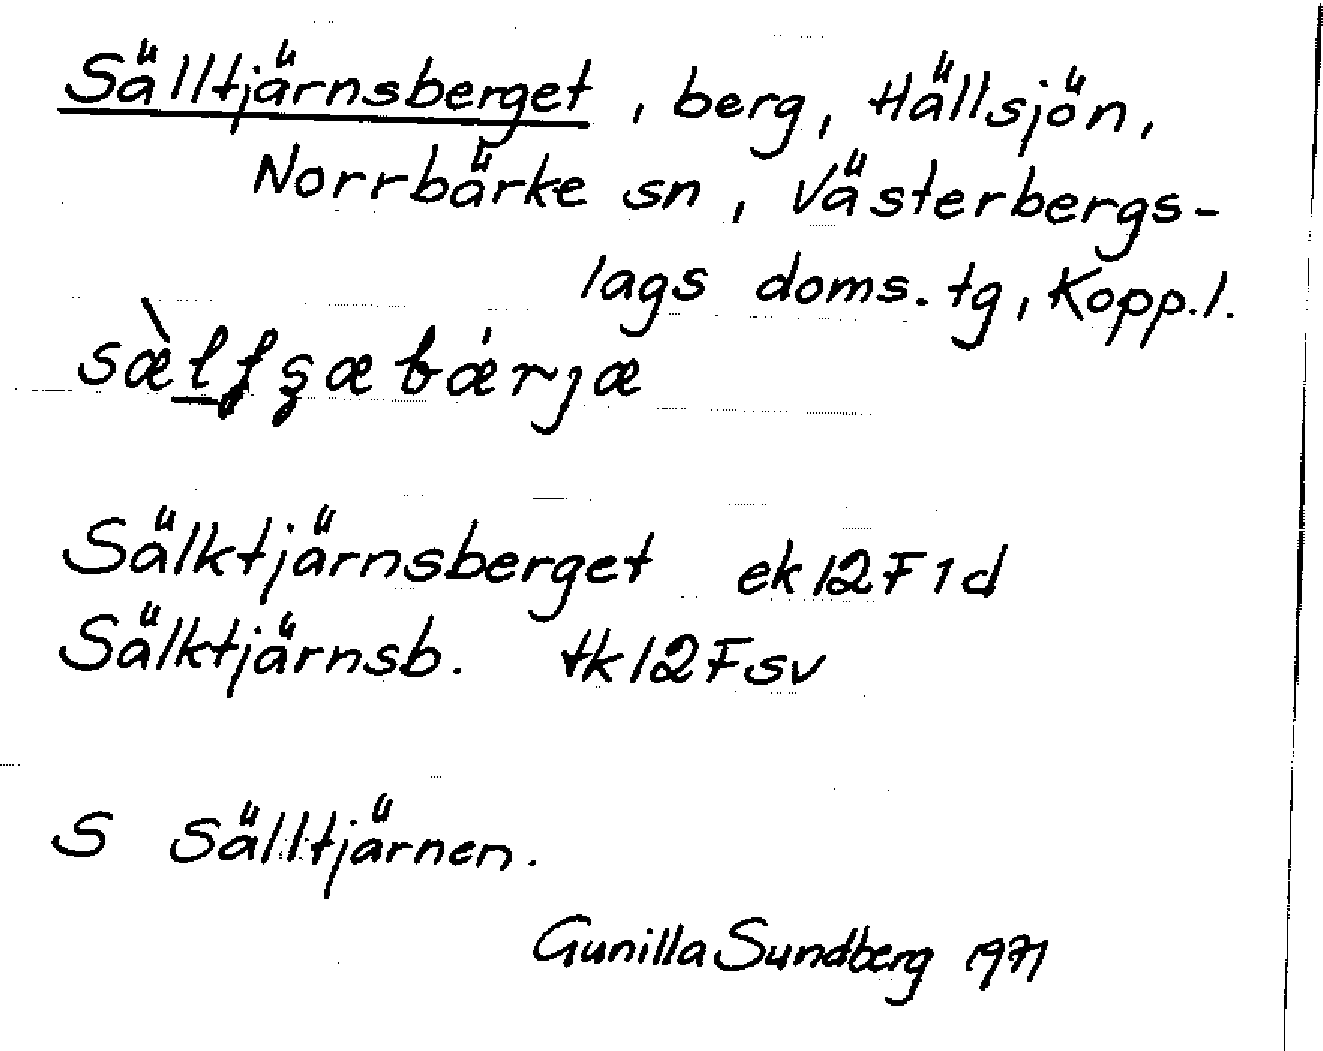 Sälltjärnsberget, berg, Hällsjön,
Norrbärke sn, Västerbergs-
lags doms. tg, Kopp. l.
Sälktjärnsberget ek 12F1d
Sälktjärnsb. tk 12Fsv
S Sälltjärnen.
Gunilla Sundberg 1971